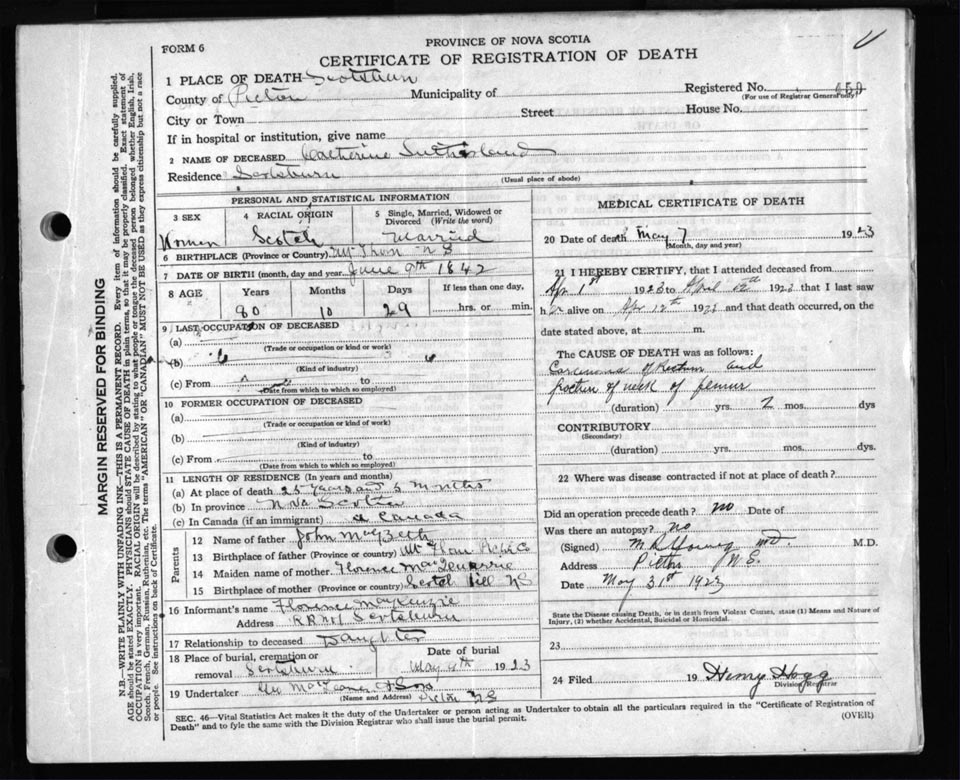 FORM 6
PROVINCE OF NOVA SCOTIA
CERTIFICATE OF REGISTRATION OF DEATH
MARGIN RESERVED FOR BINDING
N.B.—WRITE PLAINLY WITH UNFADING INK—THIS IS A PERMANENT RECORD. Every item of information should be carefully supplied.
AGE should be stated EXACTLY. PHYSICIANS should STATE CAUSE OF DEATH in plain terms, so that it may be properly classified. Exact statement of
OCCUPATION is very important. RACIAL ORIGIN will be described by stating to what people or tongue the deceased person belonged whether English, Irish,
Scotch, French, German, Russian, Ruthenian, etc. The terms "AMERICAN" OR "CANADIAN" MUST NOT BE USED as they express citizenship but not a race
or people. See instructions on back of Certificate.
1 PLACE OF DEATH Scotsburn
Registered No. 659
County of Pictou Municipality of
(For use of Registrar General only)
City or Town Street House No.
If in hospital or institution, give name
2 NAME OF DECEASED Catherine Sutherland
Residence Scotsburn
(Usual place of abode)
PERSONAL AND STATISTICAL INFORMATION
3 SEX 4 RACIAL ORIGIN 5 Single, Married, Widowed or Divorced (Write the word)
Women Scotch Married
6 BIRTHPLACE (Province or Country) Mt Thom N S
7 DATE OF BIRTH (month, day and year) June 9th 1842
8 AGE Years Months Days If less than one day,
80 10 29 hrs. or min.
9 LAST OCCUPATION OF DECEASED
(a)
(Trade or occupation or kind or work)
(b)
(Kind of industry)
(c) From to
(Date from which to which so employed)
10 FORMER OCCUPATION OF DECEASED
(a)
(Trade or occupation or kind of work)
(b)
(Kind of industry)
(c) From to
(Date from which to which so employed)
11 LENGTH OF RESIDENCE (In years and months)
(a) At place of death 25 years and 5 months
(b) In province Nova Scotia
(c) In Canada (if an immigrant) Canada
Parents
12 Name of father John MacBeth
13 Birthplace of father (Province or country) Mt Thom Pictou Co
14 Maiden name of mother Florence MacQuarrie
15 Birthplace of mother (Province or country) Scotch Hill NS
16 Informant's name Florence MacKenzie
Address RR No 1 Scotsburn
17 Relationship to deceased Daughter
18 Place of burial, cremation or removal Scotsburn
Date of burial May 9th 1923
19 Undertaker & Sons
(Name and Address) Pictou NS
MEDICAL CERTIFICATE OF DEATH
20 Date of death May 7 1923
(Month, day and year)
21 I HEREBY CERTIFY, that I attended deceased from
Apr 1st 1923 to April 12th 1923 that I last saw
her alive on Apr 12th 1923 and that death occurred, on the
date stated above, at m.
The CAUSE OF DEATH was as follows:
Carcinoma of Rectum and
fracture of neck of femur
(duration) yrs. 2 mos. dys
CONTRIBUTORY
(Secondary)
(duration) yrs. mos. dys.
22 Where was disease contracted if not at place of death?
Did an operation precede death? no Date of
Was there an autopsy? no
(Signed) M R Young MD. M.D.
Address Pictou N.S.
Date May 31st 1923
State the Disease causing Death, or in death from Violent Causes, state (1) Means and Nature of
Injury, (2) whether Accidental, Suicidal or Homicidal.
23
24 Filed 19 Henry Hogg
Division Registrar
SEC. 46—Vital Statistics Act makes it the duty of the Undertaker or person acting as Undertaker to obtain all the particulars required in the "Certificate of Registration of
Death" and to fyle the same with the Division Registrar who shall issue the burial permit.
(OVER)